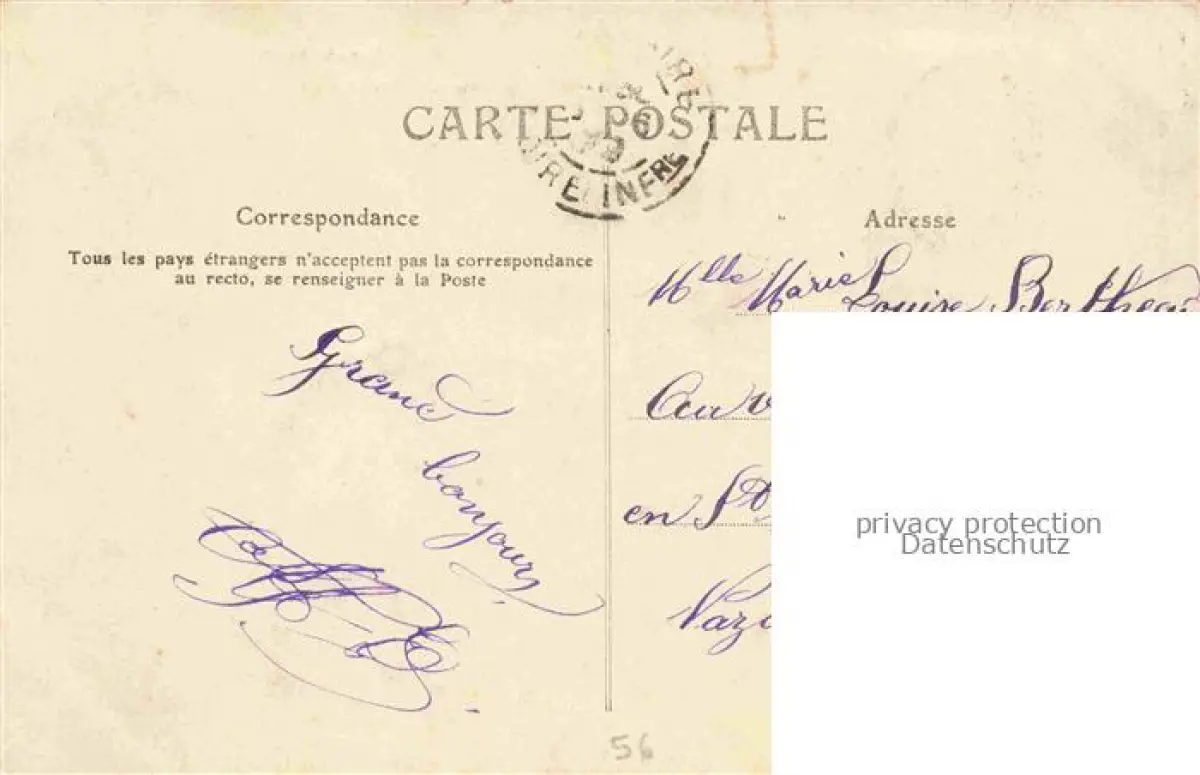 CARTE POSTALE
IRE INFRE
Correspondance
Tous les pays étrangers n'acceptent pas la correspondance
au recto, se renseigner à la Poste
Grand
bonjour
Adresse
Mlle Marie Louise Bertheau
en St
privacy protection
Datenschutz
56